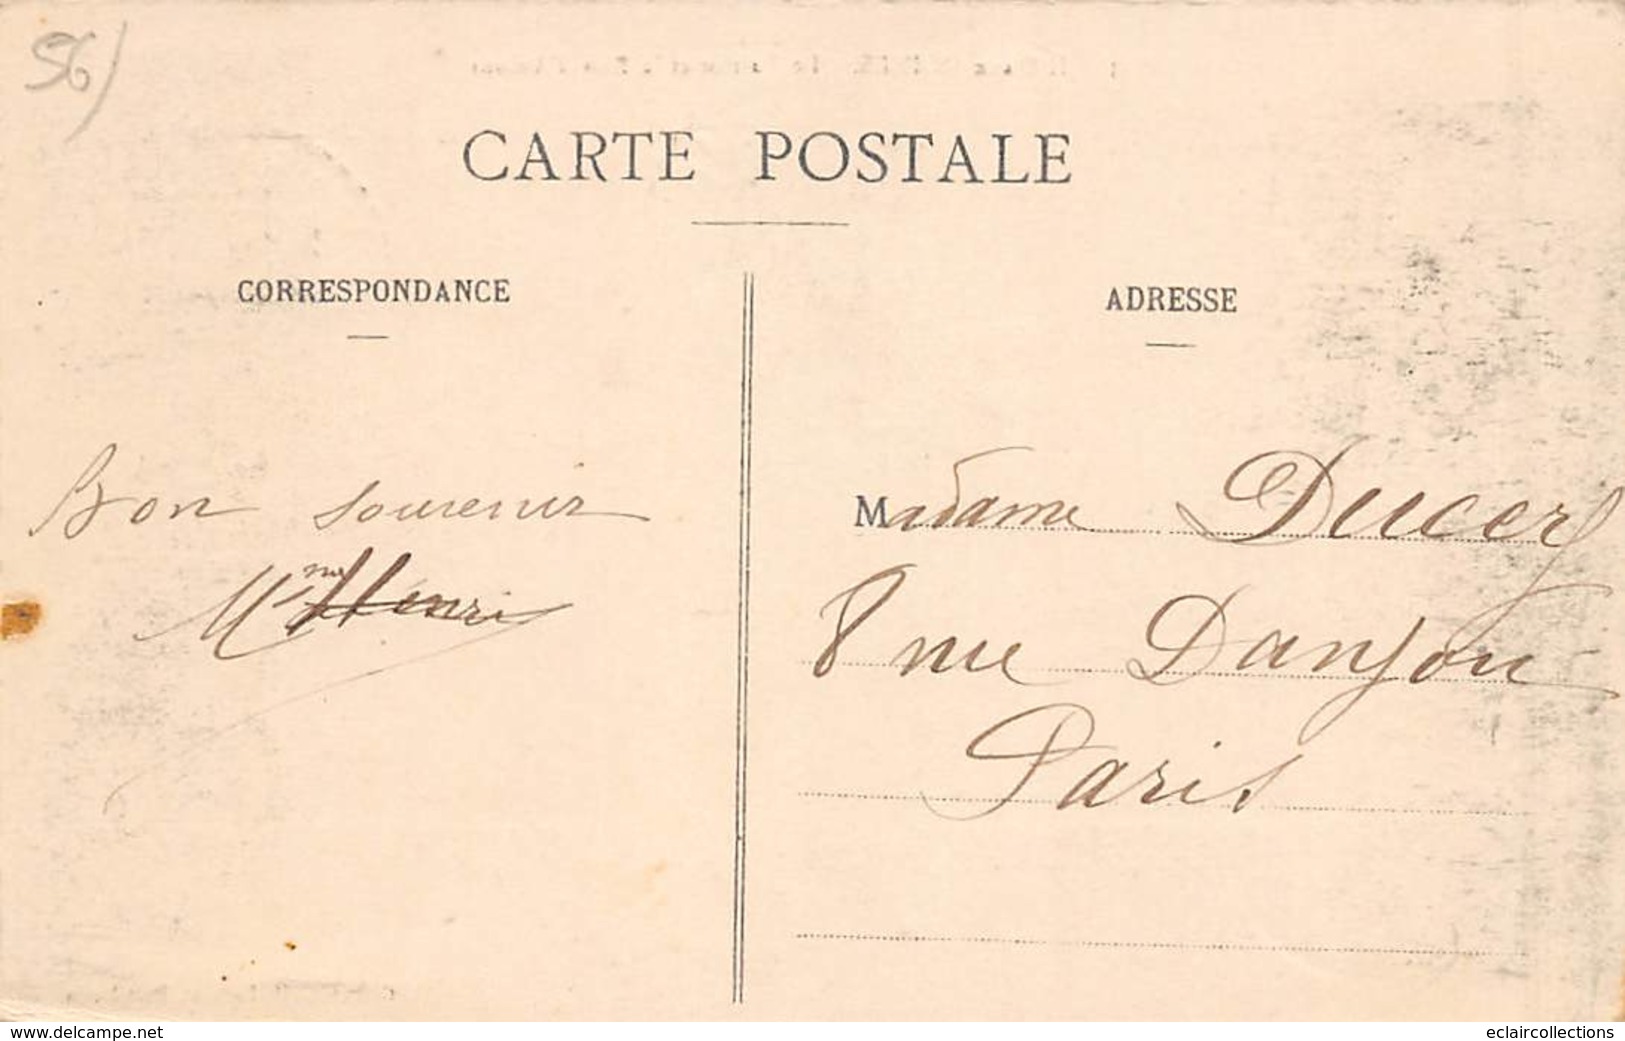 56)
CARTE POSTALE
CORRESPONDANCE
ADRESSE
Bon souvenir
Mme Henri
Madame Ducerf
8 rue Danjou
Paris
www.delcampe.net
eclaircollections